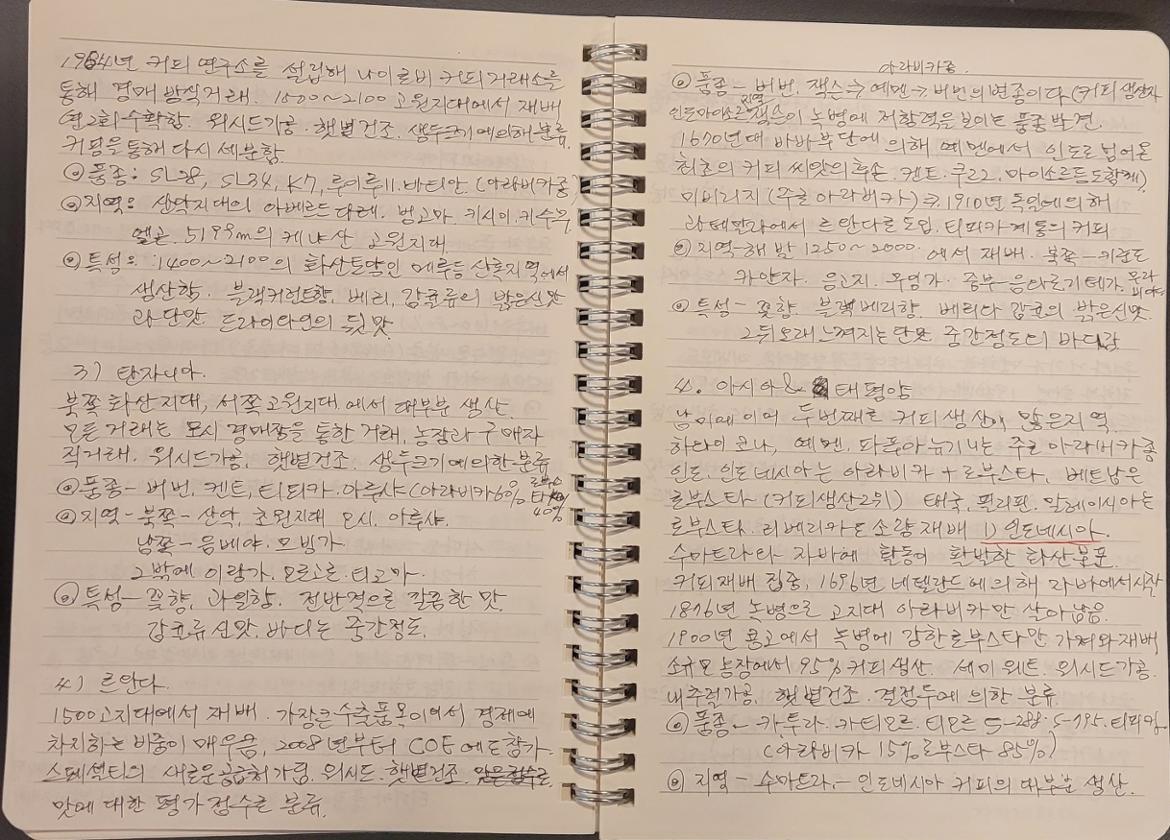 1964년 커피 연구소를 설립해 나이로비 커피거래소를
통해 경매 방식거래. 1500~2100 고원지대에서 재배
(연2회수확함. 워시드가공. 햇볕건조. 생두크기에의해 분류.
커핑을통해 다시 세분함.
◎품종: SL28, SL34, K7, 루이루11. 바티안. (아라비카종)
◎지역: 산악지대의 아베르드다레. 벙고마. 키시이. 키수무,
엘곤. 5199m의 케냐산 고원지대
◎특성: 1400~2100의 화산토양인 메루등 산록지역에서
생산함. 블랙커런트향, 베리, 감귤류의 밝은신맛
과 단맛. 드라이와인의 뒷맛
3) 탄자니아.
북쪽 화산지대, 서쪽고원지대.에서 대부분 생산.
모든 거래는 모시 경매장을 통한 거래, 농장과 구매자
직거래. 워시드가공, 햇볕건조. 생두크기에의한 분류
◎품종- 버번. 켄트, 티피카. 아루샤 (아라비카60% 로부스타 40%
◎지역- 북쪽- 산악, 초원지대 모시. 아루샤.
남쪽- 음베야. 모빙가.
그밖에 이링가. 모로고로. 티고마.
◎특성- 꽃향, 과일향. 전반적으로 깔끔한 맛.
감귤류신맛. 바디는 중간정도.
4) 르완다.
1500고지대에서 재배. 가장큰 수출품목이여서 경제에
차지하는 비중이 매우큼, 2008년부터 COE에도참가.
스페셜티의 새로운공급처가됨. 워시드. 햇볕건조.
맛에 대한 평가점수로 분류.
아라비카종.
◎품종- 버번. 잭슨⇒예멘→버번의변종이다 (커피 생산자
인도마이소르지역 잭슨이 녹병에 저항력을 보이는 품종 발견.
1670년대 바바부단에 의해 예멘에서 인도로넘어온
최초의 커피 씨앗의후손. 켄트. 쿠르그. 마이소르등도함께)
미비리지 (주로 아라비카) ⇒ 1910년 독일에의해
과테말라에서 르완다로도입. 티피카계통의 커피
◎지역-해발1250~2000에서 재배. 북쪽-키안도
카얀자. 응고지. 무잉가. 중부-음타로기테가.
◎특성- 꽃향. 블랙베리향. 베리다 감귤의 밝은신맛.
그뒤오래느껴지는단맛. 중간정도의 바디감
4. 아시아& 태평양
남미에이어 두번째로 커피생산이 많은지역.
하와이 코나, 예멘, 파푸아뉴기니는 주로 아라비카종
인도, 인도네시아는 아라비카+로부스타, 베트남은
로부스타 (커피생산2위) 태국, 필리핀, 말레이시아는
로부스타. 리베리카도 소량재배 1) 인도네시아.
수마트라와 자바에 활동이 확발한 화산분포.
커피재배 집중, 1696년 네델란드에의해 자바에서시작
1876년 녹병으로 고지대 아라비카만 살아남음.
1900년 콩고에서 녹병에 강한로부스타만 가져와재배
소규모농장에서 95%커피생산. 세미 워트. 워시드가공.
내추럭가공, 햇볕건조. 결점두에 의한 분류.
◎품종- 카투라. 카티모르. 티모르 S-288. S-795. 티피카.
(아라비카 15% 로부스타 85%)
◎지역- 수마트라- 인도네시아 커피의 대부분 생산.